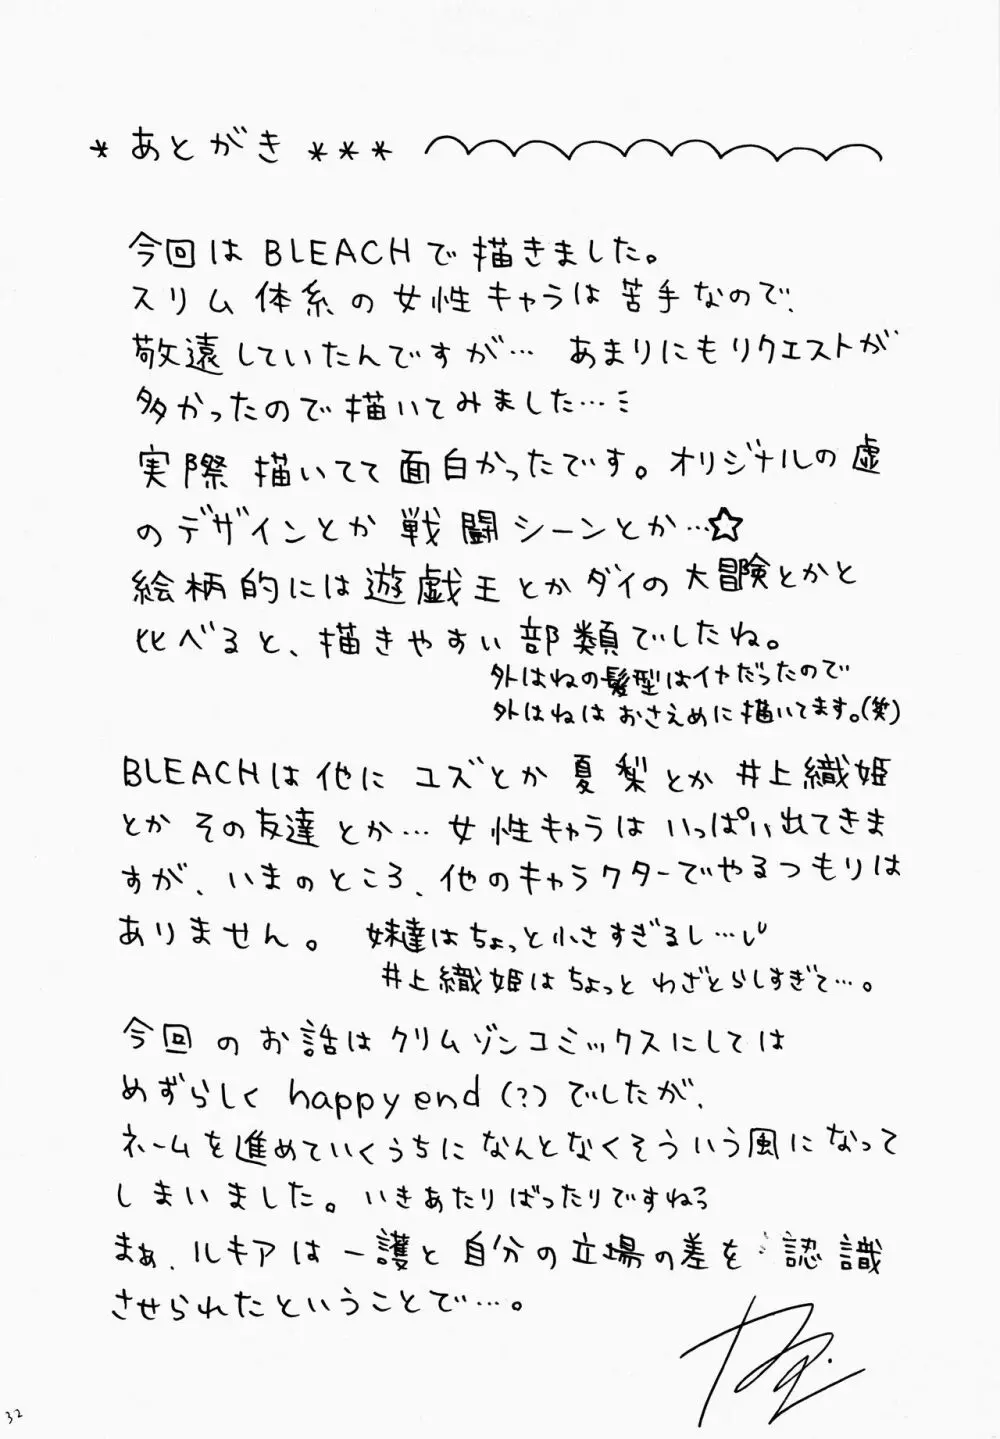 * あとがき ***
今回はBLEACHで描きました。
スリム体系の女性キャラは苦手なので、
敬遠していたんですが… あまりにもリクエストが
多かったので描いてみました…
実際描いてて面白かったです。オリジナルの虚
のデザインとか戦闘シーンとか…☆
絵柄的には遊戯王とかダイの大冒険とかと
比べると、描きやすい部類でしたね。
外はねの髪型はイヤだったので
外はねはおさえめに描いてます。(笑)
BLEACHは他にユズとか夏梨とか井上織姫
とかその友達とか…女性キャラはいっぱい出てきま
すが、いまのところ、他のキャラクターでやるつもりは
ありません。 妹達はちょっと小さすぎるし…
井上織姫はちょっとわざとらしすぎて…。
今回のお話はクリムゾンコミックスにしては
めずらしくhappy end(?)でしたが、
ネームを進めていくうちになんとなくそういう風になって
しまいました。いきあたりばったりですねぇ
まぁ、ルキアは一護と自分の立場の差を認識
させられたということで…。
32